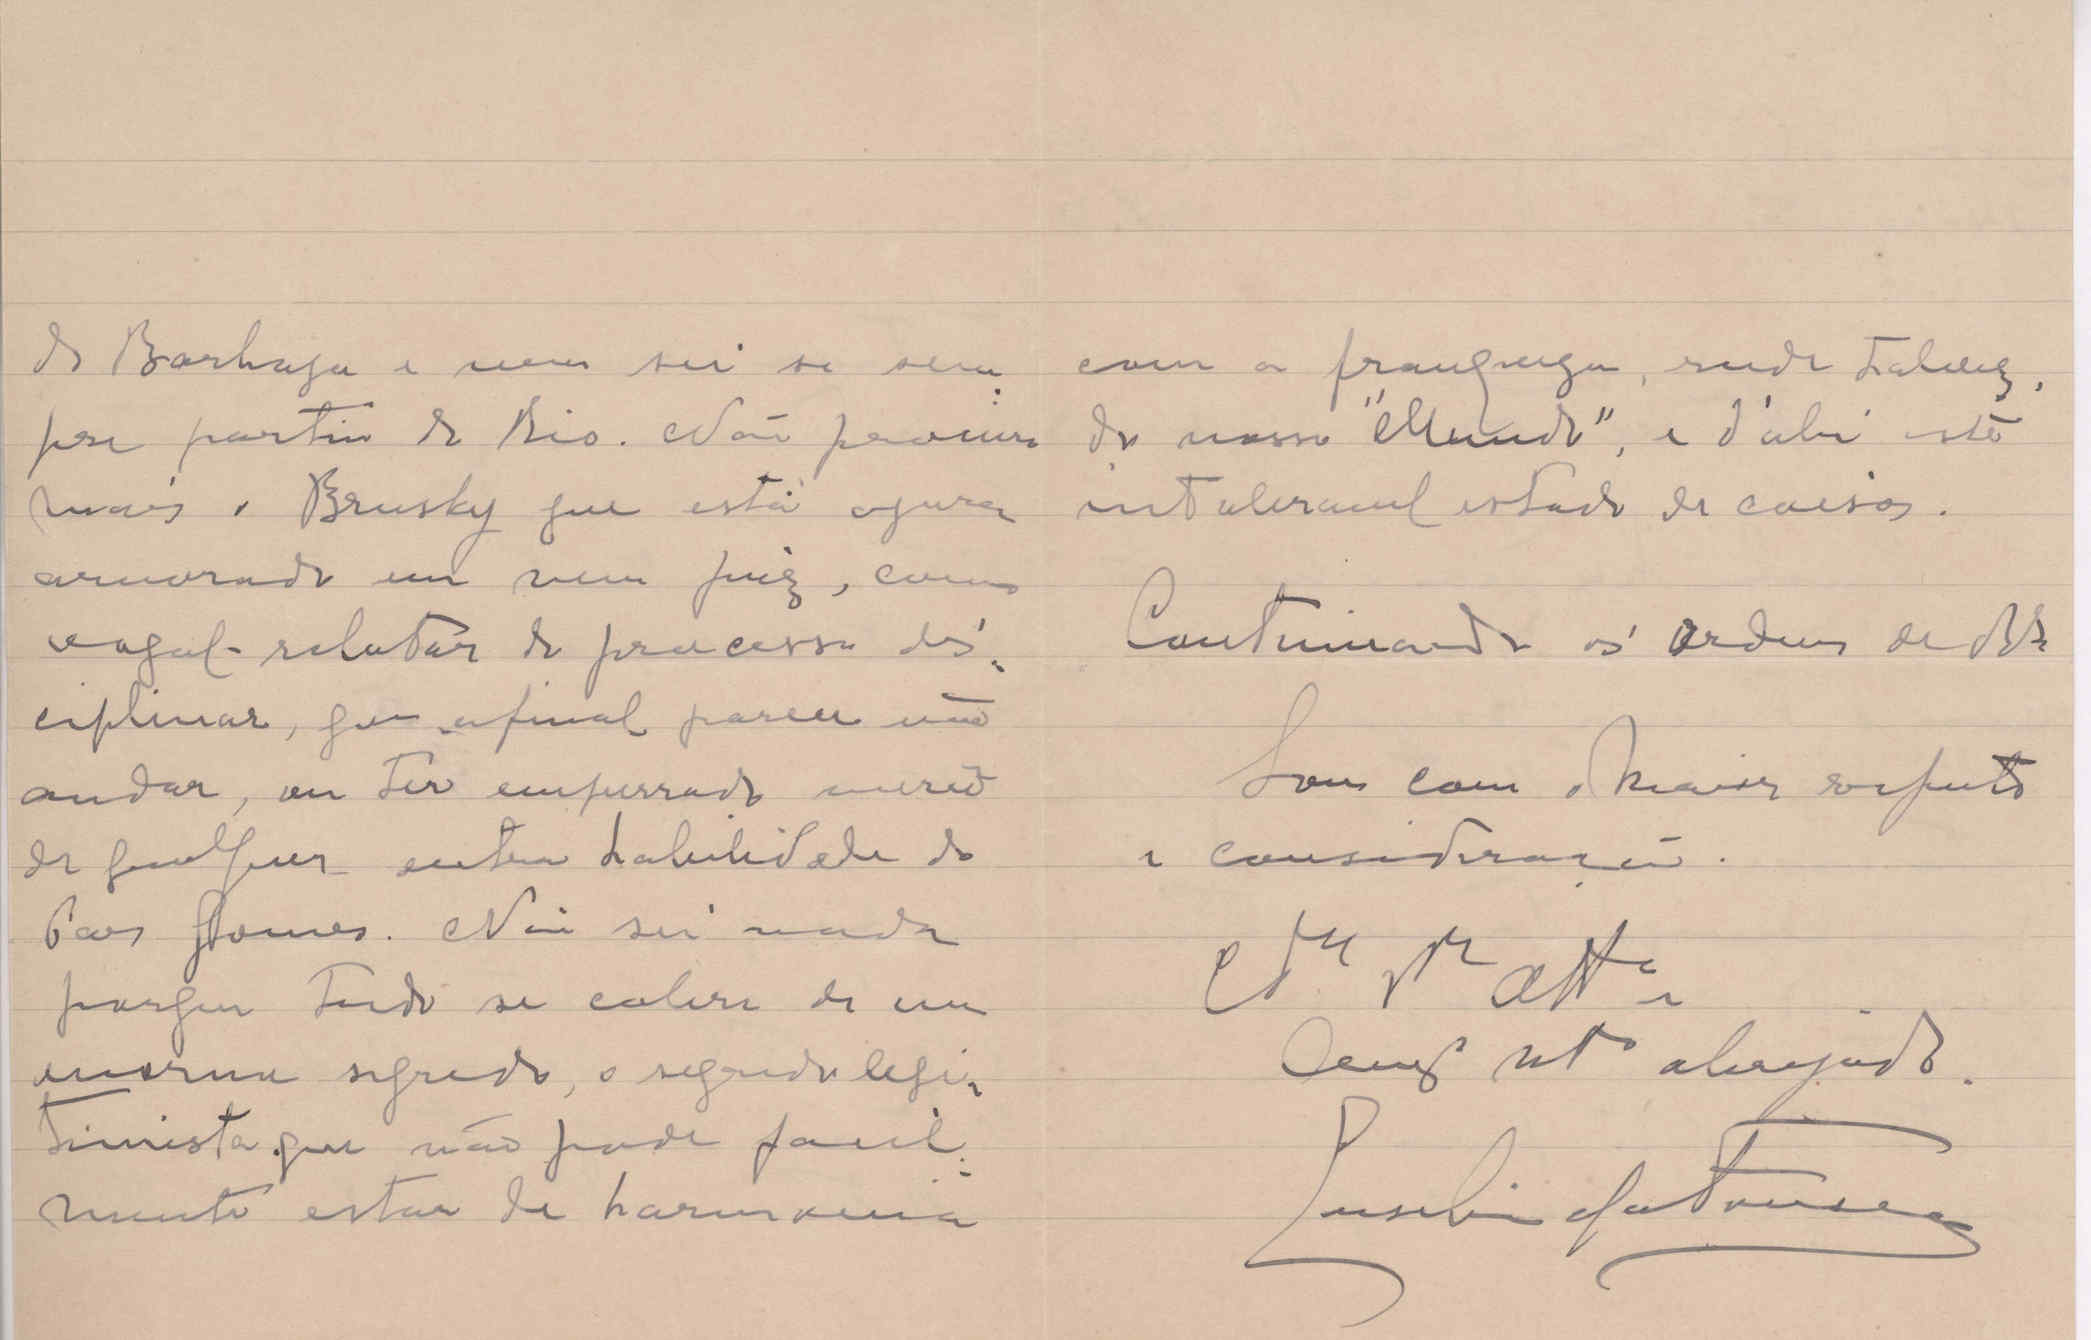 do Barbosa e nem sei se sem-
pre partiu do Rio. Não procuro
mais o Brusky que está agora
armorado em vem juiz, como
vogal-relator do processo dis-
ciplinar, que afinal parece não
andar, ou ter emperrado mercê
de qualquer outra habilidade do
Paes Gomes. Não sei nada
porque tudo se cobre de um
enorme segredo, o segredo legi-
timista que não pode facil-
mente estar de harmonia
com a franqueza, rude talvez,
do nosso "Mundo", e d'ahi este
intoleravel estado de coisas.
Continuando ás ordens de
Sou com o maior respeito
e consideração.
De V. Ex.ª Att.º e
mt.º obrigado.
Eusebio da Fonseca